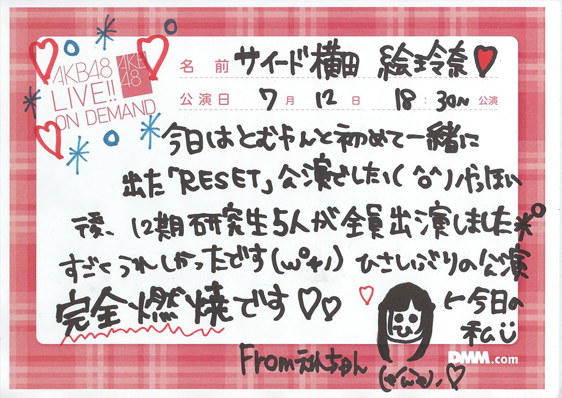 AKB48
LIVE!!
ON DEMAND
AKB
48
名前 サイード横田 絵玲奈
公演日 7月 12日 18:30〜 公演
今日はともやんと初めて一緒に
出た「RESET」公演でした\(^o^)/やっほい
後、12期研究生5人が全員出演しました
すごくうれしかったです ひさしぶりの公演
完全燃焼です
←今日の
私
From えれちゃん
DMM.com